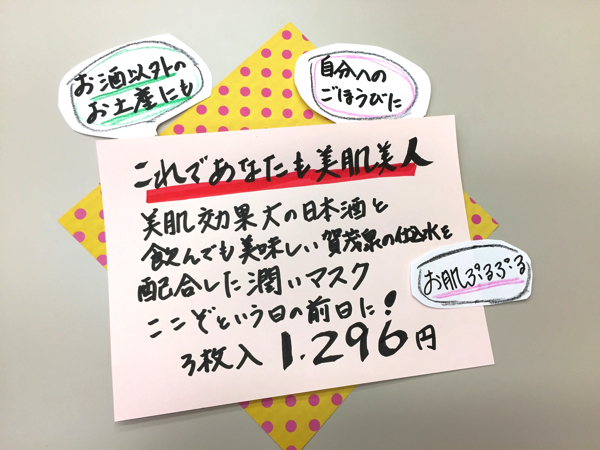 お酒以外の
お土産にも
自分への
ごほうびに
これであなたも美肌美人
美肌効果大の日本酒と
飲んでも美味しい賀茂泉の仕込水を
配合した潤いマスク
ここぞという日の前日に!
3枚入 1.296円
お肌ぷるぷる